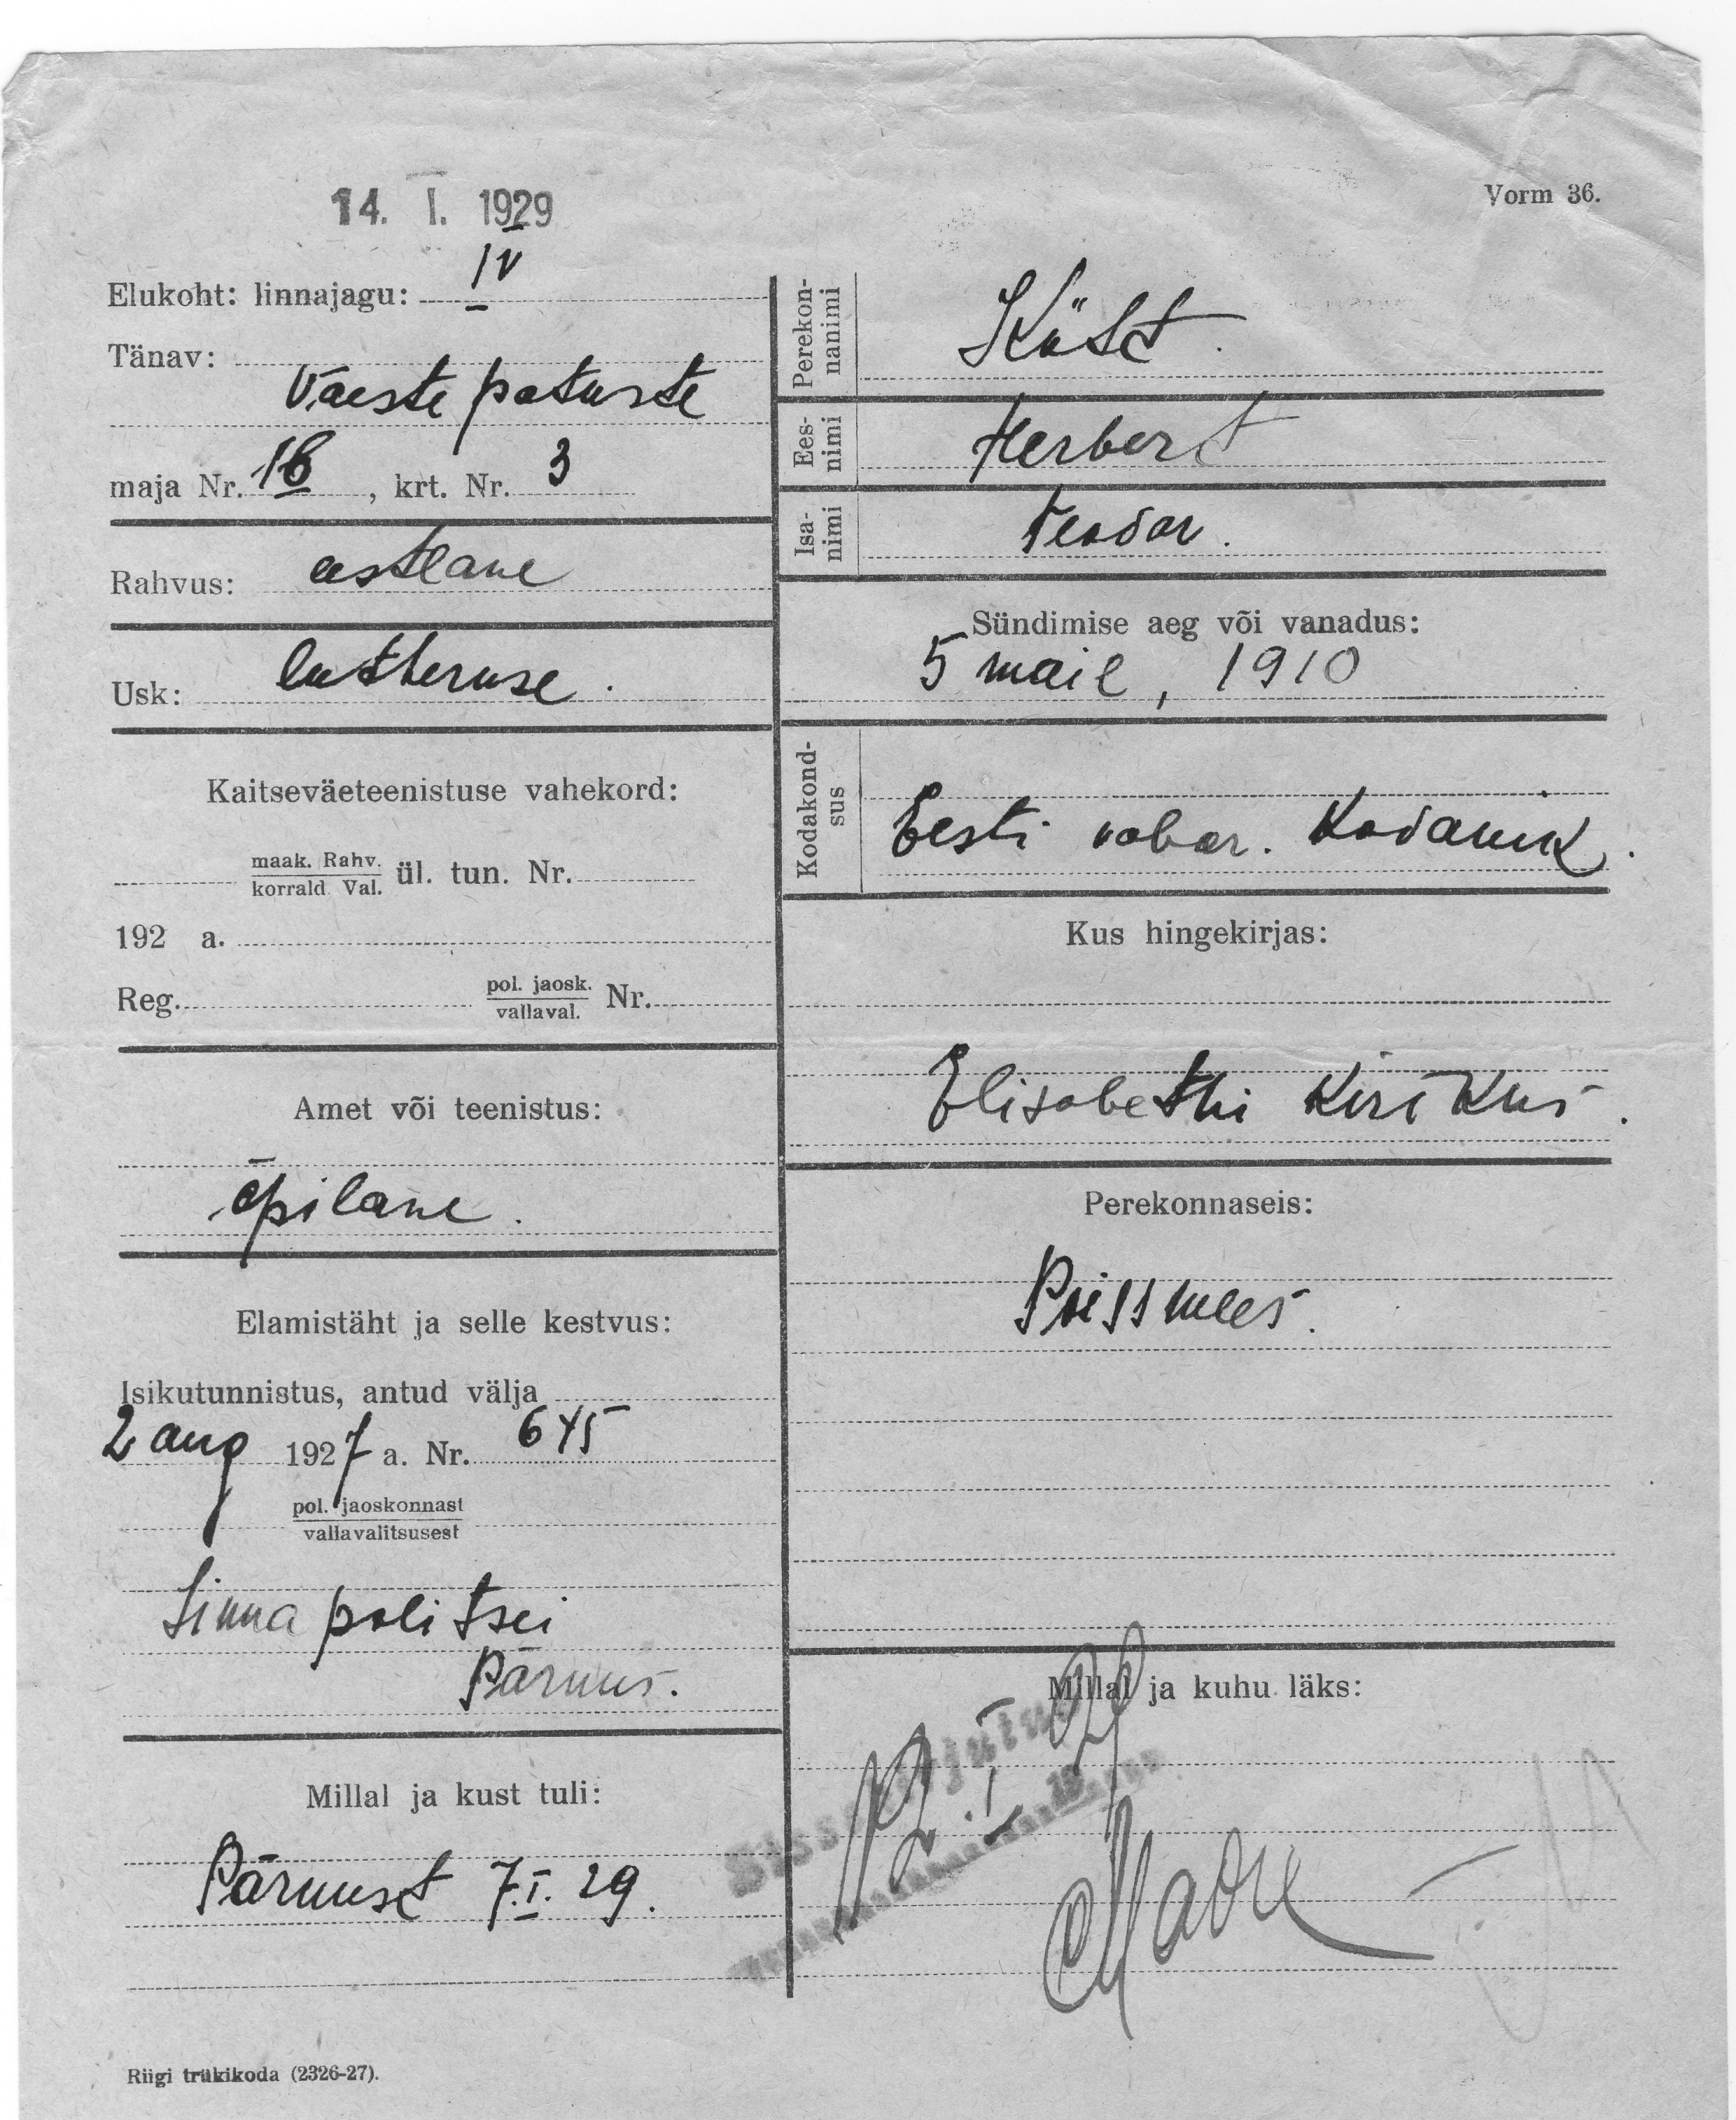 14. I. 1929
Vorm 36.
Elukoht: linnajagu: IV
Tänav:
Vaeste patuste
maja Nr. 16, krt. Nr. 3
Rahvus: eestlane
Usk: lutheruse.
Kaitseväeteenistuse vahekord:
maak. Rahv.
korrald. Val. ül. tun. Nr.
192 a.
Reg. pol. jaosk. Nr.
vallaval.
Amet või teenistus:
õpilane.
Elamistäht ja selle kestvus:
Isikutunnistus, antud välja
2 aug 1927 a. Nr. 645
pol. jaoskonnast
vallavalitsusest
Linna politsei
Pärnus.
Millal ja kust tuli:
Pärnust 7.I.29.
Perekon-
nanimi
Küst.
Ees-
nimi
Herbert
Isa-
nimi
Teodor.
Sündimise aeg või vanadus:
5 mail, 1910
Kodakond-
sus
Eesti vabar. Kodanik.
Kus hingekirjas:
Elisabethi Kirikus.
Perekonnaseis:
Poissmees.
Millal ja kuhu läks:
Riigi trükikoda (2326-27).